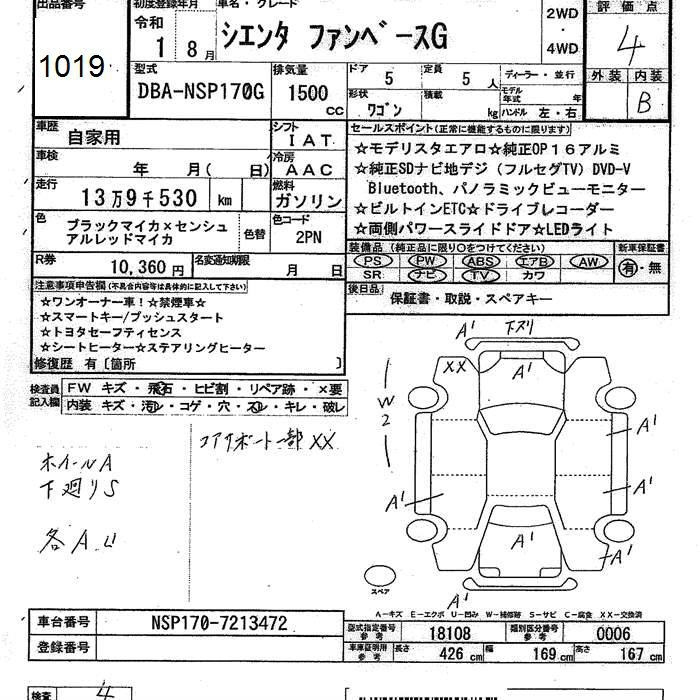 出品番号
初度登録年月
車名・グレード
評価点
令和
1
8月
シエンタ ファンベースG
2WD
・
4WD
4
1019
型式
DBA-NSP170G
排気量
1500
cc
ドア
5
定員
5
人
ディーラー・並行
外装
内装
形状
ワゴン
積載
kg
モデル年式
年
ハンドル
左・右
B
車歴
自家用
シフト
IAT
セールスポイント(正常に機能するものに限ります)
車検
年
月(
日)
冷房
AAC
☆モデリスタエアロ☆純正OP16アルミ
☆純正SDナビ地デジ(フルセグTV)DVD-V
走行
13万9千530
km
燃料
ガソリン
Bluetooth、パノラミックビューモニター
☆ビルトインETC☆ドライブレコーダー
☆両側パワースライドドア☆LEDライト
色
ブラックマイカ×センシュ
アルレッドマイカ
色替
色コード
2PN
装備品 (純正品に限り○をつけてください)
新車保証書
PS
PW
ABS
エアB
AW
有・無
SR
ナビ
TV
カワ
R券
10,360円
名変通知期限
月
日
後日品
保証書・取説・スペアキー
注意事項申告欄(不具合内容等は具体的に記入して下さい)
☆ワンオーナー車!☆禁煙車☆
☆スマートキー/プッシュスタート
☆トヨタセーフティセンス
☆シートヒーター☆ステアリングヒーター
修復歴 有〔箇所
〕
検査員
記入欄
FW キズ・飛石・ヒビ割・リペア跡・×要
内装 キズ・汚レ・コゲ・穴・スレ・キレ・破レ
コアサポート一部XX
ホイールA
下廻りS
各A.U
A'
下スリ
XX
A'
W
2
A'
A'
A'
A'
A'
A'
スペア
A-キズ E-エクボ U-凹み W-補修跡 S-サビ C-腐食 XX-交換済
車台番号
NSP170-7213472
型式指定番号
参考
18108
類別区分番号
参考
0006
登録番号
車庫証明用
参考
長さ
426 cm
幅
169 cm
高さ
167 cm
検査
4